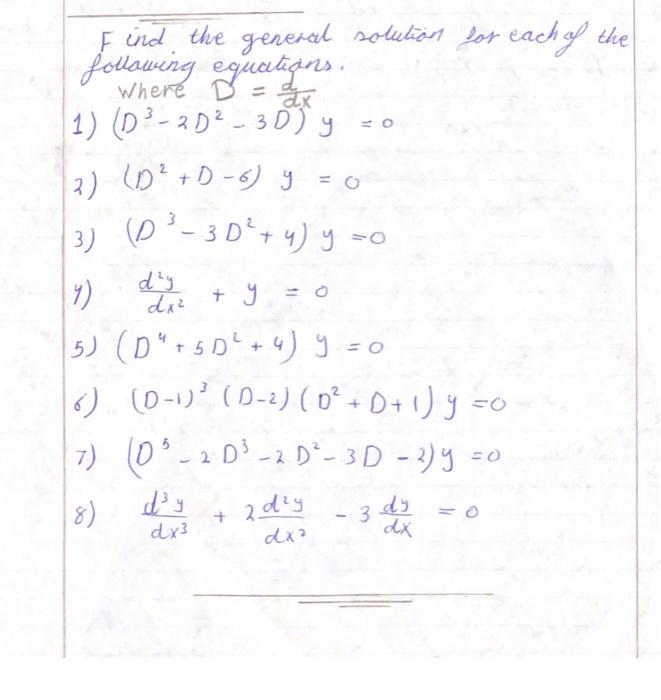 Find the general solution for each of the
following equations.
Where D = d/dx
1) (D³ - 2D² - 3D) y = 0
2) (D² + D - 6) y = 0
3) (D³ - 3D² + 4) y = 0
4) d²y/dx² + y = 0
5) (D⁴ + 5D² + 4) y = 0
6) (D-1)³ (D-2) (D² + D + 1) y = 0
7) (D⁵ - 2D³ - 2D² - 3D - 2) y = 0
8) d³y/dx³ + 2 d²y/dx² - 3 dy/dx = 0